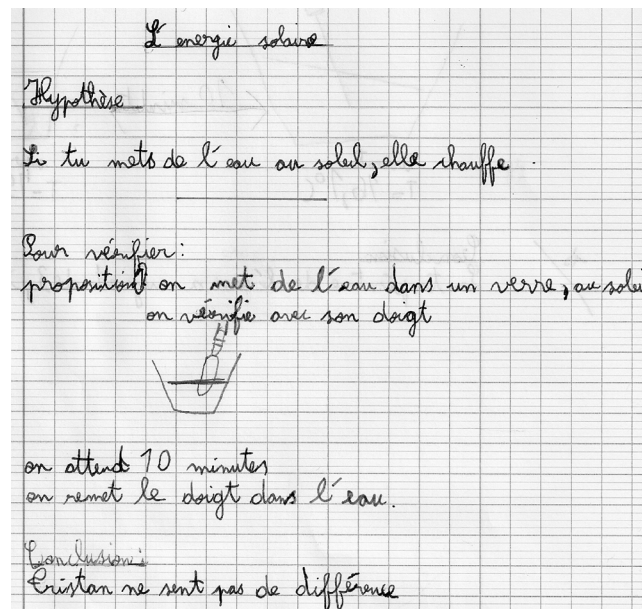 L'energie solaire
Hypothèse
Si tu mets de l'eau au soleil, elle chauffe.
Pour vérifier:
proposition on met de l'eau dans un verre, au soleil
on vérifie avec son doigt
on attend 10 minutes
on remet le doigt dans l'eau.
Conclusion:
Tristan ne sent pas de différence